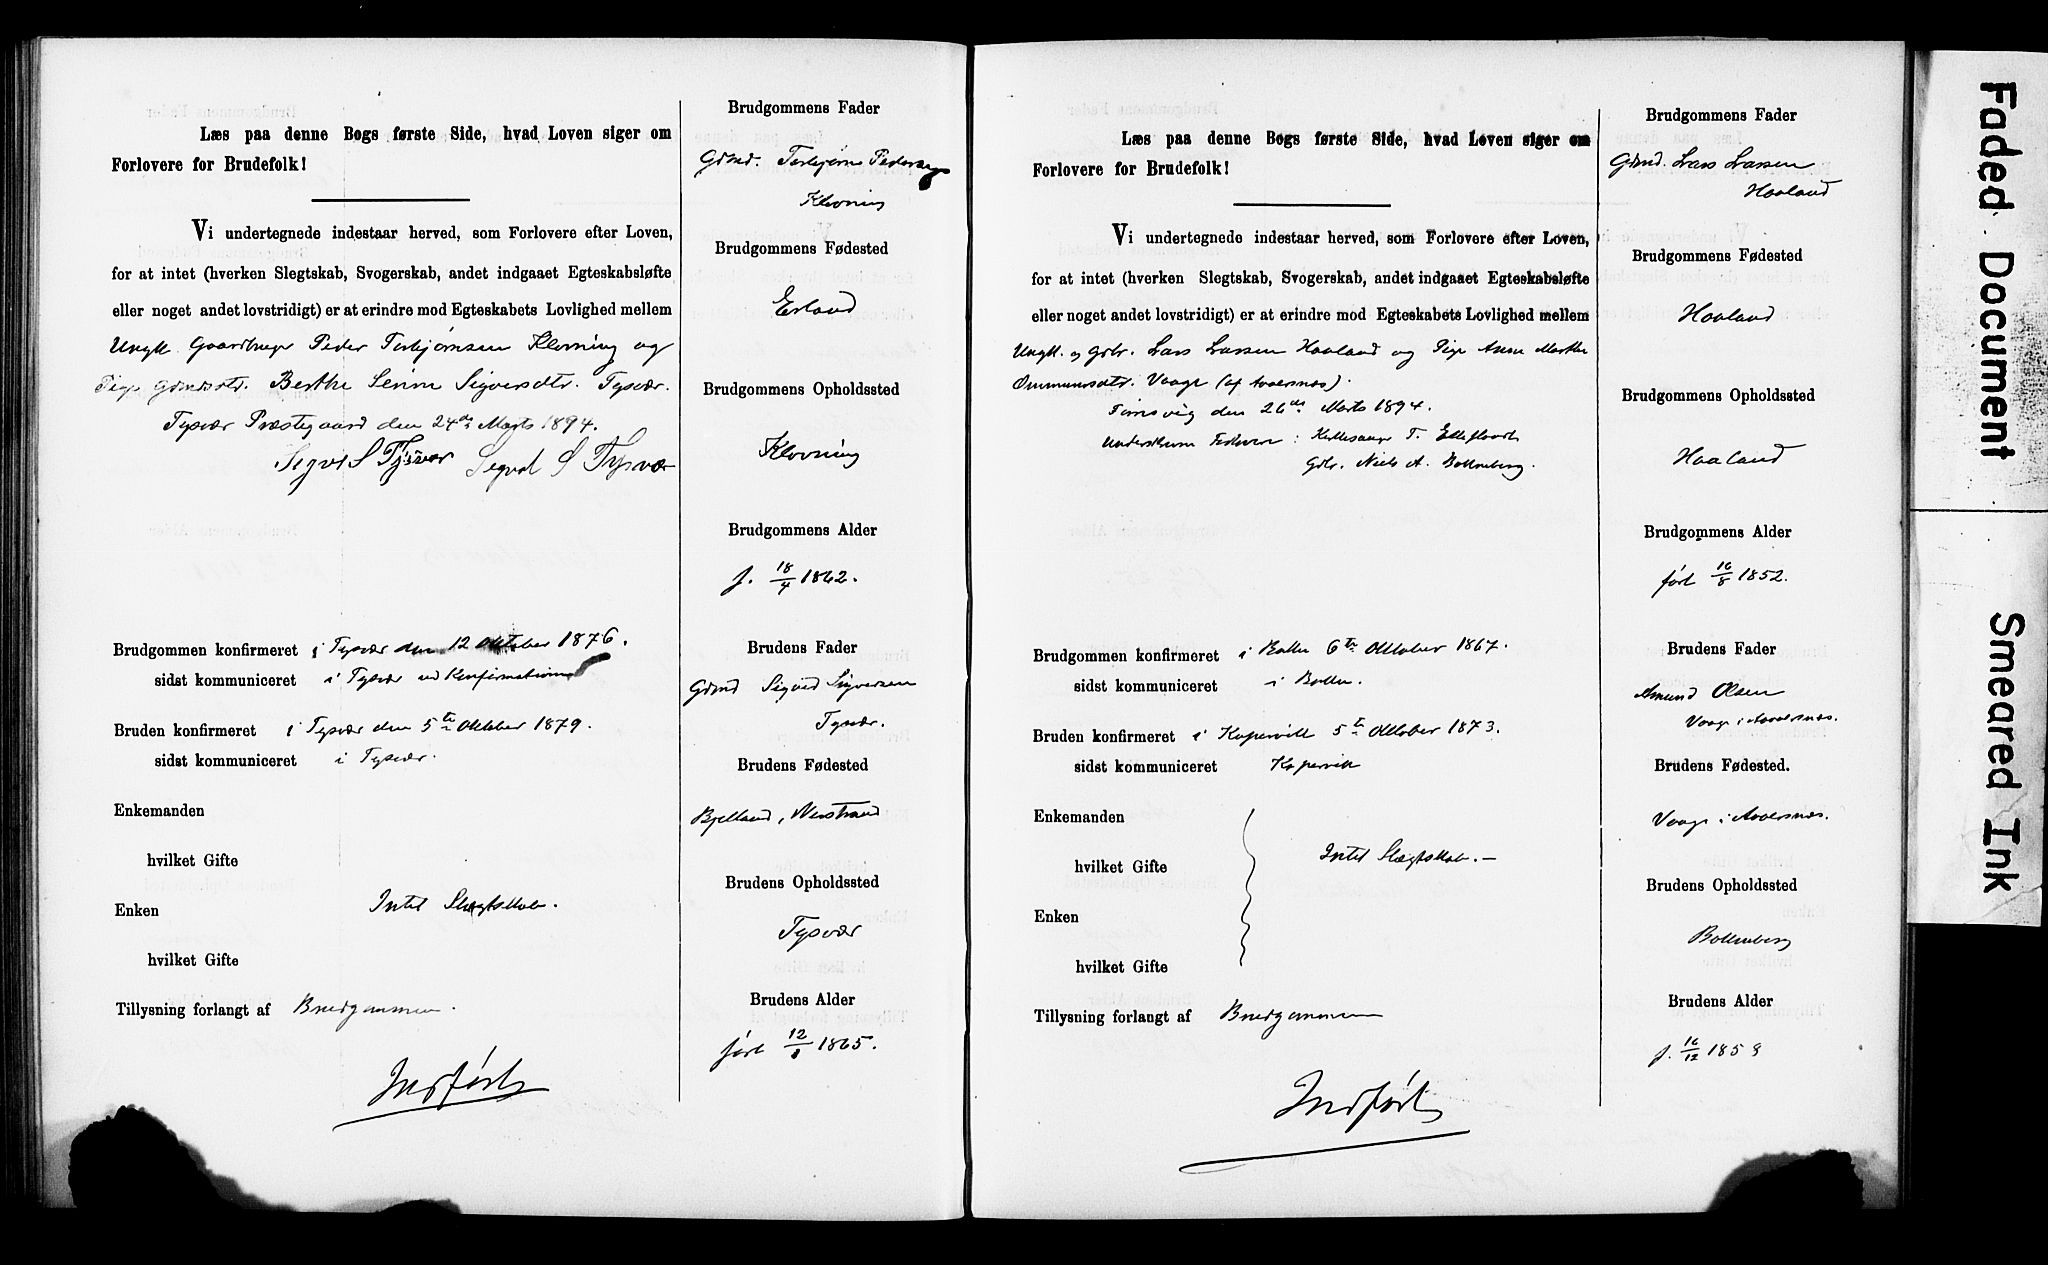 Læs paa denne Bogs første Side, hvad Loven siger om
Forlovere for Brudefolk!
Vi undertegnede indestaar herved, som Forlovere efter Loven,
for at intet (hverken Slegtskab, Svogerskab, andet indgaaet Egteskabsløfte
eller noget andet lovstridigt) er at erindre mod Egteskabets Lovlighed mellem
Ungk. Gaardbruger Peder Torbjørnsen Klovning og
Pige Gdmdsdtr. Berthe Serine Sigversdtr. Tysvær.
Tysvær Præstegaard den 24de Marts 1894.
Sigvd S Tysvær Segvd S Tysvær
Brudgommen konfirmeret i Tysvær den 12 Oktober 1876.
sidst kommuniceret i Tysvær ved Konfirmationen
Bruden konfirmeret i Tysvær den 5te Oktober 1879.
sidst kommuniceret i Tysvær.
Enkemanden
hvilket Gifte
Enken
Intet Slægtskab.
hvilket Gifte
Tillysning forlangt af Brudgommen.
Indført
Brudgommens Fader
Gdmd. Torbjørn Pedersen
Klovning
Brudgommens Fødested
Erland
Brudgommens Opholdssted
Klovning
Brudgommens Alder
f. 18/4 1862.
Brudens Fader
Gdmd Sigvid Sigversen
Tysvær.
Brudens Fødested
Bjelland, Nerstrand
Brudens Opholdssted
Tysvær
Brudens Alder
født 12/8 1865.
Læs paa denne Bogs første Side, hvad Loven siger om
Forlovere for Brudefolk!
Vi undertegnede indestaar herved, som Forlovere efter Loven,
for at intet (hverken Slegtskab, Svogerskab, andet indgaaet Egteskabsløfte
eller noget andet lovstridigt) er at erindre mod Egteskabets Lovlighed mellem
Ungk. og Gdbr. Lars Larsen Haaland og Pige Anne Marthe
Ommundsdtr. Vaage (af Avaersnæs).
den 26de Marts 1894.
Underskrevne Forlovere: Kirkesanger T.
Gdbr. Niels A. Bokneberg.
Brudgommen konfirmeret i Bokn 6te Oktober 1867.
sidst kommuniceret i Bokn.
Bruden konfirmeret i Kopervik 5te Oktober 1873.
sidst kommuniceret Kopervik
Enkemanden
Intet Slægtskab.—
hvilket Gifte
Enken
hvilket Gifte
Tillysning forlangt af Brudgommen
Indført
Brudgommens Fader
Gdmd. Lars Larsen
Haaland
Brudgommens Fødested
Haaland
Brudgommens Opholdssted
Haaland
Brudgommens Alder
født 16/8 1852.
Brudens Fader
Amund Olsen
Vaage i Avaersnæs.
Brudens Fødested.
Vaage i Avaersnæs.
Brudens Opholdssted
Bokneberg
Brudens Alder
f. 16/12 1859
Faded Document
Smeared Ink